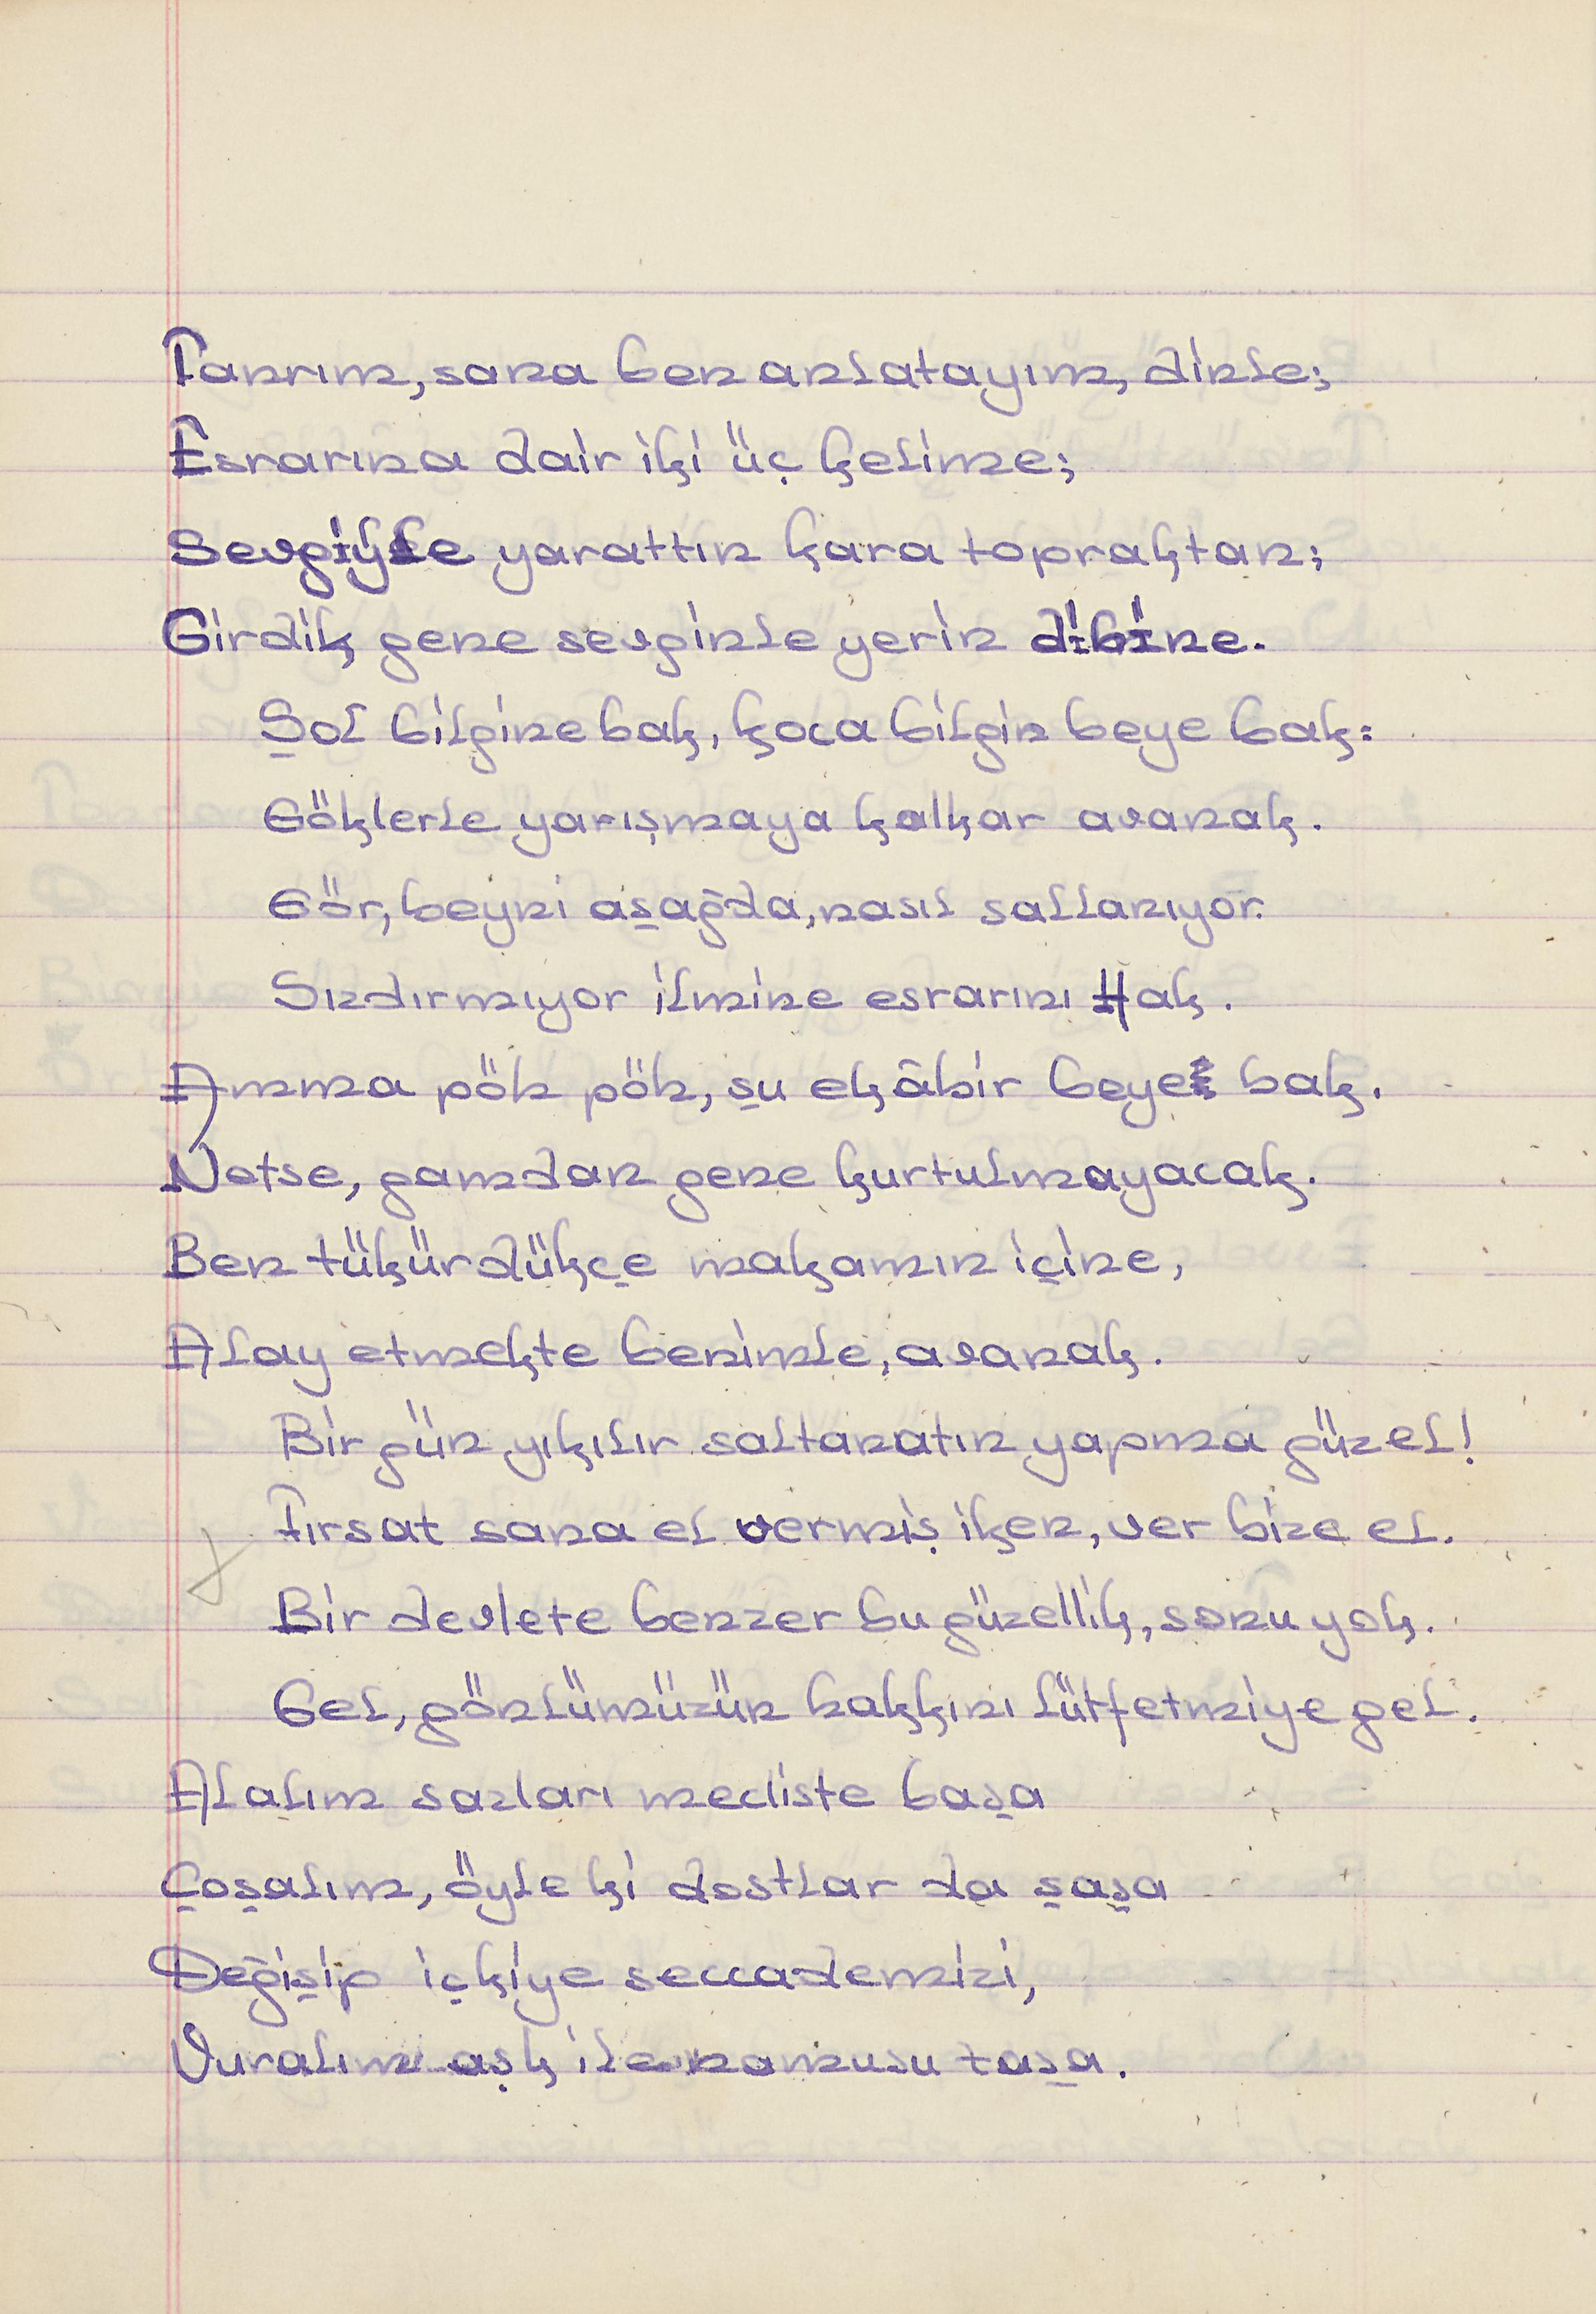 Tanrım, sana ben anlatayım, dinle;
Esrarına dair iki üç kelime;
Sevgiyle yarattın kara topraktan;
Girdik gene sevginle yerin dibine.
Şol bilgine bak, koca bilgin beye bak:
Göklerle yarışmaya kalkar avanak.
Gör, beyni aşağda, nasıl sallanıyor.
Sızdırmıyor ilmine esrarını Hak.
Amma pöh pöh, şu ekâbir beye bak.
Netse, gamdan gene kurtulmayacak.
Ben tükürdükçe makamın içine,
Alay etmekte benimle, avanak.
Bir gün yıkılır saltanatın yapma güzel!
Fırsat sana el vermiş iken, ver bize el.
Bir devlete benzer bu güzellik, sonu yok.
Gel, gönlümüzün hakkını lütfetmiye gel.
Alalım sazları mecliste başa
Coşalım, öyle ki dostlar da şaşa
Değişip içkiye seccademizi,
Vuralım aşk ile namusu taşa.